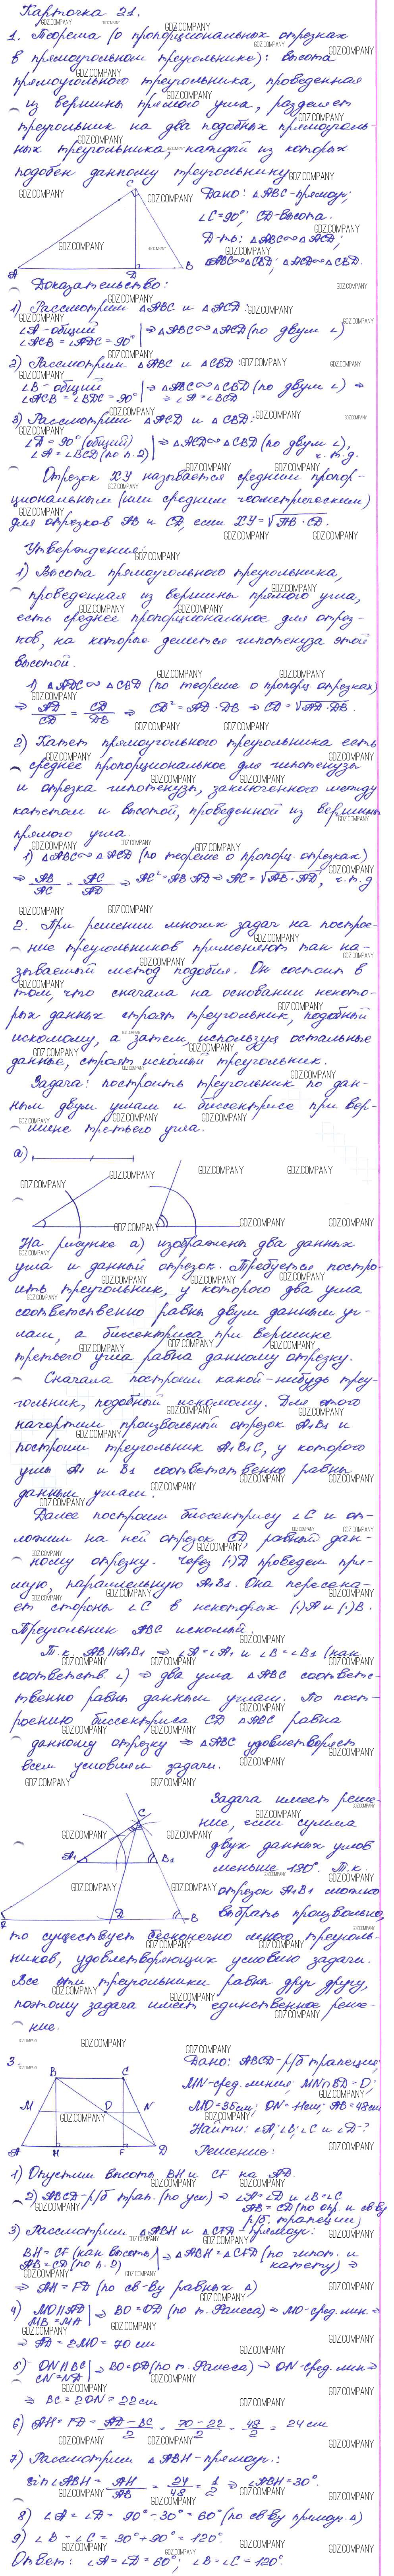 Карточка 21.
1. Теорема (о пропорциональных отрезках
в прямоугольном треугольнике): высота
прямоугольного треугольника, проведенная
из вершины прямого угла, разделяет
треугольник на два подобных прямоуголь-
ных треугольника, каждый из которых
подобен данному треугольнику.
Дано: △ABC-прямоуг;
∠C=90°; CD-высота.
Д-ть: △ABC∾△ACD;
△ABC∾△CBD; △ACD∾△CBD.
C
A D B
Доказательство:
1) Рассмотрим △ABC и △ACD:
∠A-общий
∠ACB=∠ADC=90° | ⇒△ABC∾△ACD (по двум ∠)
2) Рассмотрим △ABC и △CBD:
∠B-общий | ⇒△ABC∾△CBD (по двум ∠) ⇒
∠ACB=∠BDC=90° ⇒ ∠A=∠BCD
3) Рассмотрим △ACD и △CBD:
∠D=90° (общий) | ⇒△ACD∾△CBD (по двум ∠),
∠A=∠BCD (по п.2) ч.т.д.
Отрезок XY называется средним пропор-
циональным (или средним геометрическим)
для отрезков AB и CD, если XY=√AB·CD.
Утверждения:
1) Высота прямоугольного треугольника,
проведенная из вершины прямого угла,
есть среднее пропорциональное для отрез-
ков, на которые делится гипотенуза этой
высотой.
1) △ADC∾△CBD (по теореме о пропорц. отрезках)
⇒ AD/CD = CD/DB ⇒ CD²=AD·DB ⇒ CD=√AD·DB.
2) Катет прямоугольного треугольника есть
среднее пропорциональное для гипотенузы
и отрезка гипотенузы, заключенного между
катетом и высотой, проведенной из вершины
прямого угла.
1) △ABC∾△ACD (по теореме о пропорц. отрезках)
⇒ AB/AC = AC/AD ⇒ AC²=AB·AD ⇒ AC=√AB·AD, ч.т.д
2. При решении многих задач на построе-
ние треугольников применяют так на-
зываемый метод подобия. Он состоит в
том, что сначала на основании некото-
рых данных строят треугольник, подобный
искомому, а затем, используя остальные
данные, строят искомый треугольник.
Задача: построить треугольник по дан-
ным двум углам и биссектрисе при вер-
шине третьего угла.
а)
На рисунке а) изображены два данных
угла и данный отрезок. Требуется постро-
ить треугольник, у которого два угла
соответственно равны двум данным уг-
лам, а биссектриса при вершине
третьего угла равна данному отрезку.
Сначала построим какой-нибудь треу-
гольник, подобный искомому. Для этого
начертим произвольный отрезок A₁B₁ и
построим треугольник A₁B₁C, у которого
углы A₁ и B₁ соответственно равны
данным углам.
Далее построим биссектрису ∠C и от-
ложим на ней отрезок CD, равный дан-
ному отрезку. Через (·)D проведем пря-
мую, параллельную A₁B₁. Она пересека-
ет стороны ∠C в некоторых (·)A и (·)B.
Треугольник ABC искомый.
Т.к. AB||A₁B₁ ⇒ ∠A=∠A₁ и ∠B=∠B₁ (как
соответств. ∠) ⇒ два угла △ABC соответс-
твенно равны данным углам. По пост-
роению биссектриса CD △ABC равна
данному отрезку ⇒ △ABC удовлетворяет
всем условиям задачи.
C
A₁ B₁
A D B
Задача имеет реше-
ние, если сумма
двух данных углов
меньше 180°. Т.к.
отрезок A₁B₁ можно
выбрать произвольно,
то существует бесконечно много треуголь-
ников, удовлетворяющих условию задачи.
Все эти треугольники равны друг другу,
поэтому задача имеет единственное реше-
ние.
3.
B C
M O N
A H F D
Дано: ABCD-р/б трапеция;
MN-сред. линия; MN∩BD=O;
MO=35см; ON=11см; AB=48см
Найти: ∠A; ∠B; ∠C и ∠D-?
Решение:
1) Опустим высоты BH и CF на AD.
2) ABCD-р/б трап. (по усл.) ⇒ ∠A=∠D и ∠B=∠C
AB=CD (по опр. и св-ву
р/б. трапеции)
3) Рассмотрим △ABH и △CFD-прямоуг:
BH=CF (как высоты) | ⇒△ABH=△CFD (по гипот. и
AB=CD (по п.2) катету) ⇒
⇒ AH=FD (по св-ву равных △)
4) MO||AD | ⇒ BO=OD (по т. Фалеса) ⇒ MO-сред. лин. ⇒
MB=MA
⇒ AD=2MO=70 см
5) ON||BC | ⇒ BO=OD (по т. Фалеса) ⇒ ON-сред. лин ⇒
CN=ND
⇒ BC=2ON=22см
6) AH=FD= AD-BC/2 = 70-22/2 = 48/2 = 24 см
7) Рассмотрим △ABH-прямоуг.:
sin∠ABH = AH/AB = 24/48 = 1/2 ⇒ ∠ABH=30°.
8) ∠A=∠D= 90°-30°=60° (по св-ву прямоуг. △)
9) ∠B=∠C= 30°+90°=120°.
Ответ: ∠A=∠D=60°; ∠B=∠C=120°.
GDZ.COMPANY